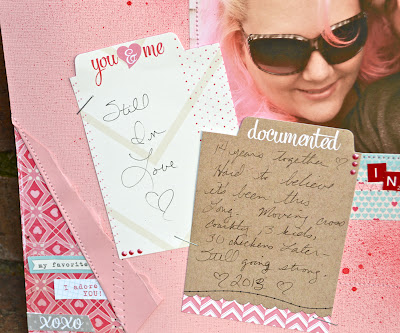 you & me
Still
In
Love
documented
14 years together
Hard to believe
it's been this
long. Moving cross
country, 3 kids,
30 chickens later
Still going strong
2013
IN
my favorite
I adore
YOU!
XOXO